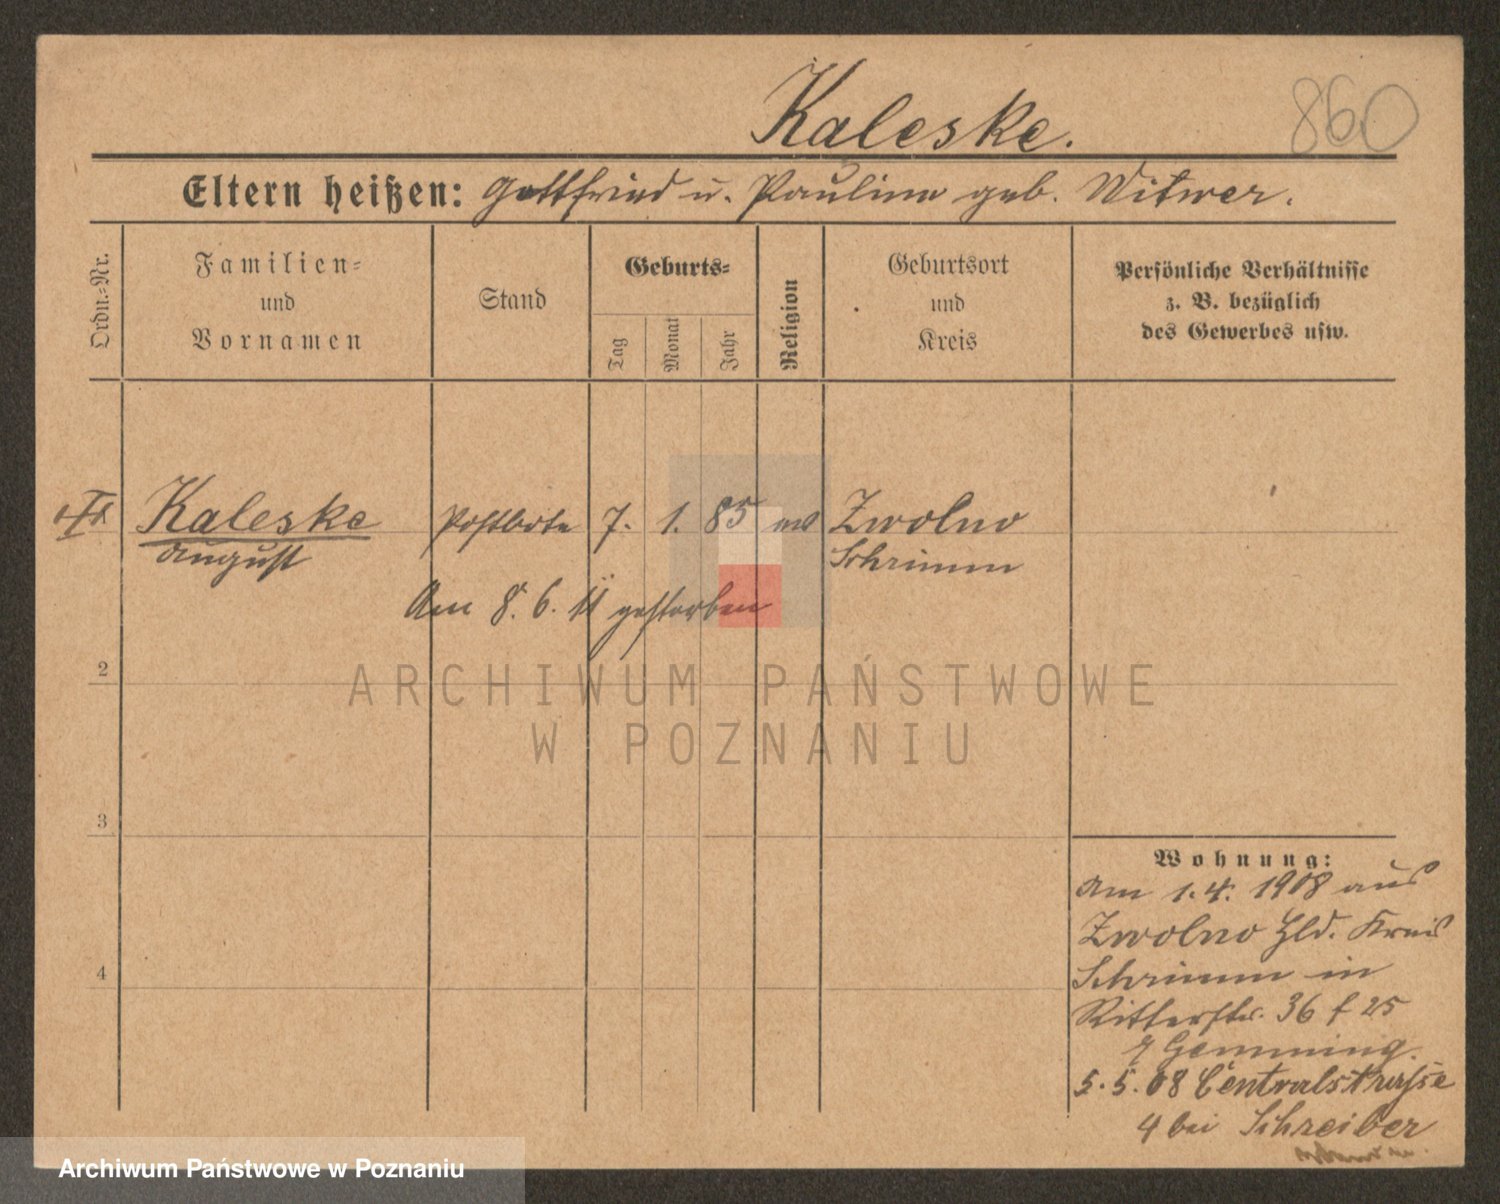 Kaleske.
860
Eltern heißen: Gottfried u. Pauline geb. Witwer.
Ordn.-Nr.
Familien-
und
Vornamen
Stand
Geburts-
Tag
Monat
Jahr
Religion
Geburtsort
und
Kreis
Persönliche Verhältnisse
z. B. bezüglich
des Gewerbes usw.
Kaleske Postbote 7. 1. 85 Zwolno
August Schrimm
Am 8. 6. 11 gestorben
2
3
4
ARCHIWUM PAŃSTWOWE
W POZNANIU
Wohnung:
Am 1.4. 1908 aus
Zwolno Hld. Kreis
Schrimm in
Ritterstr. 36 f 25
Gemming.
5.5.08 Centralstraße
4 bei Schreiber
Archiwum Państwowe w Poznaniu